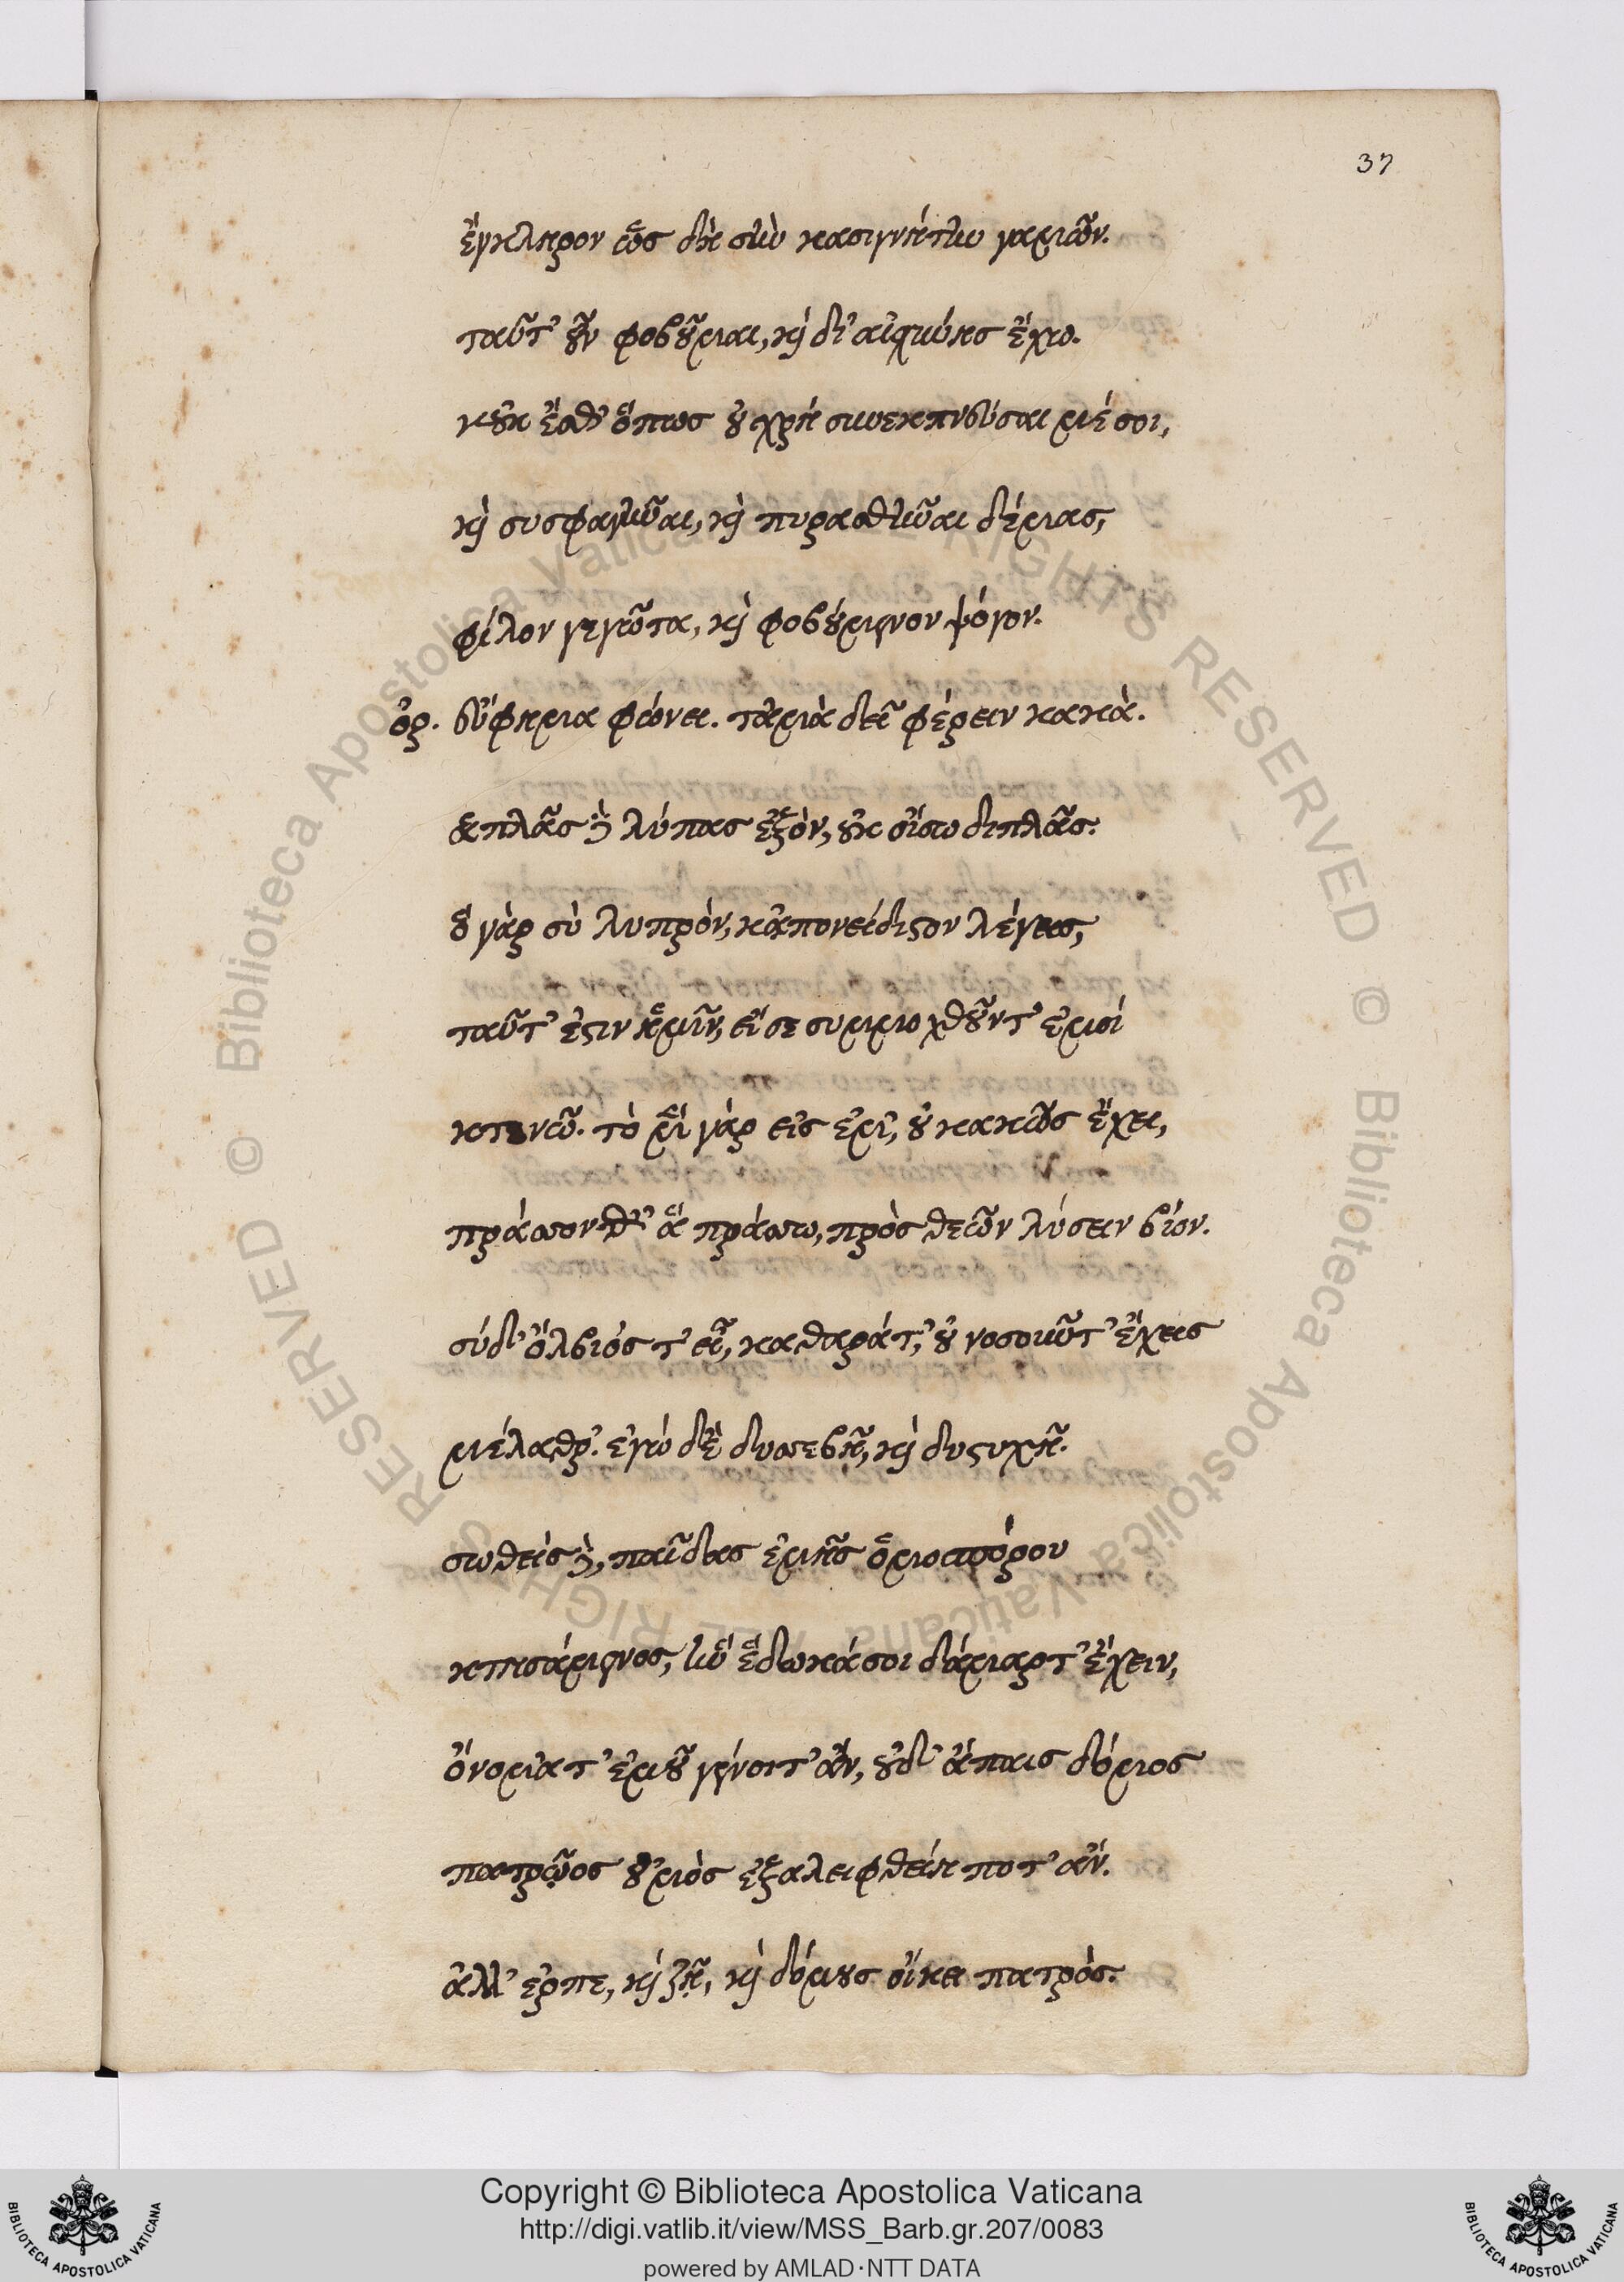 37
ἔγκληρον ὡς δὴ σὴν κασιγνήτην γαμῶν.
ταῦτ' οὖν φοβοῦμαι, κὴ δι' αἰσχύνης ἔχω.
κοὐκ ἔσθ' ὅπως οὐ χρὴ συνεκπνεῦσαι μέ σοι,
κὴ συσφαγῆναι, κὴ πυρασθῆναι δέμας,
φίλον γεγῶτα, κὴ φοβούμενον ψόγον.
ὀρ. εὔφημα φώνει. τἀμὰ δεῖ φέρειν κακὰ.
ἁπλᾶς δὲ λύπας ἐξὸν, οὐκ οἴσω διπλᾶς.
ὃ γὰρ σὺ λυπρὸν, κἀπονείδιστον λέγεις,
ταῦτ' ἐστιν ἡμῖν, εἴ σε συμμοχθοῦντ' ἐμοί
κτενῶ. τὸ μὲν γὰρ εἰς ἐμ', οὐ κακῶς ἔχει,
πράσσονθ' ἃ πράσσω, πρὸς θεῶν λύσειν βίον.
σύ δ' ὄλβιός τ' εἶ, καθαρά τ', οὐ νοσοῦντ' ἔχεις
μέλαθρ'. ἐγώ δὲ δυσσεβῆ, κὴ δυστυχῆ.
σωθεὶς δὲ, παῖδας ἐμῆς ὁμοσπόρου
κτησάμενος, ἣν ἔδωκά σοι δάμαρτ' ἔχειν,
ὄνομά τ' ἐμοῦ γένοιτ' ἂν, οὐδ' ἄπαις δόμος
πατρῷος οὑμὸς ἐξαλειφθείη ποτ' ἄν.
ἀλλ' ἕρπε, κὴ ζῆ, κὴ δόμους οἴκει πατρός.
© Biblioteca Apostolica Vaticana ALL RIGHTS RESERVED
© Biblioteca Apostolica Vaticana ALL RIGHTS RESERVED
Copyright © Biblioteca Apostolica Vaticana
http://digi.vatlib.it/view/MSS_Barb.gr.207/0083
powered by AMLAD·NTT DATA
BIBLIOTECA APOSTOLICA VATICANA
BIBLIOTECA APOSTOLICA VATICANA